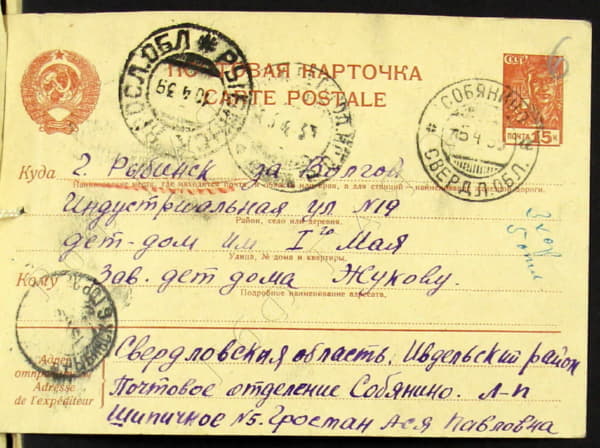 ПОЧТОВАЯ КАРТОЧКА
CARTE POSTALE
СССР
ПОЧТА 15 К
ЯРОСЛ.ОБЛ * РЫБИНСК
10 4 39
СОБЯНИНО
5.4.39
СВЕРДЛ. ОБЛ.
Куда г. Рыбинск за Волгой
Наименование места, где находится почта, и области или края, а для станций — наименование железной дороги.
Индустриальная ул N19
Район, село или деревня.
дет-дом им Iго Мая
Улица, № дома и квартиры.
Кому Зав. дет дома Жукову.
Подробное наименование адресата.
3 кор
5 отд
РЫБИНСК
Адрес отправителя
Adresse de l'expéditeur
Свердловская область, Ивдельский район
Почтовое отделение Собянино. Л-п
Шипичное N5. Гростан Ася Павловна